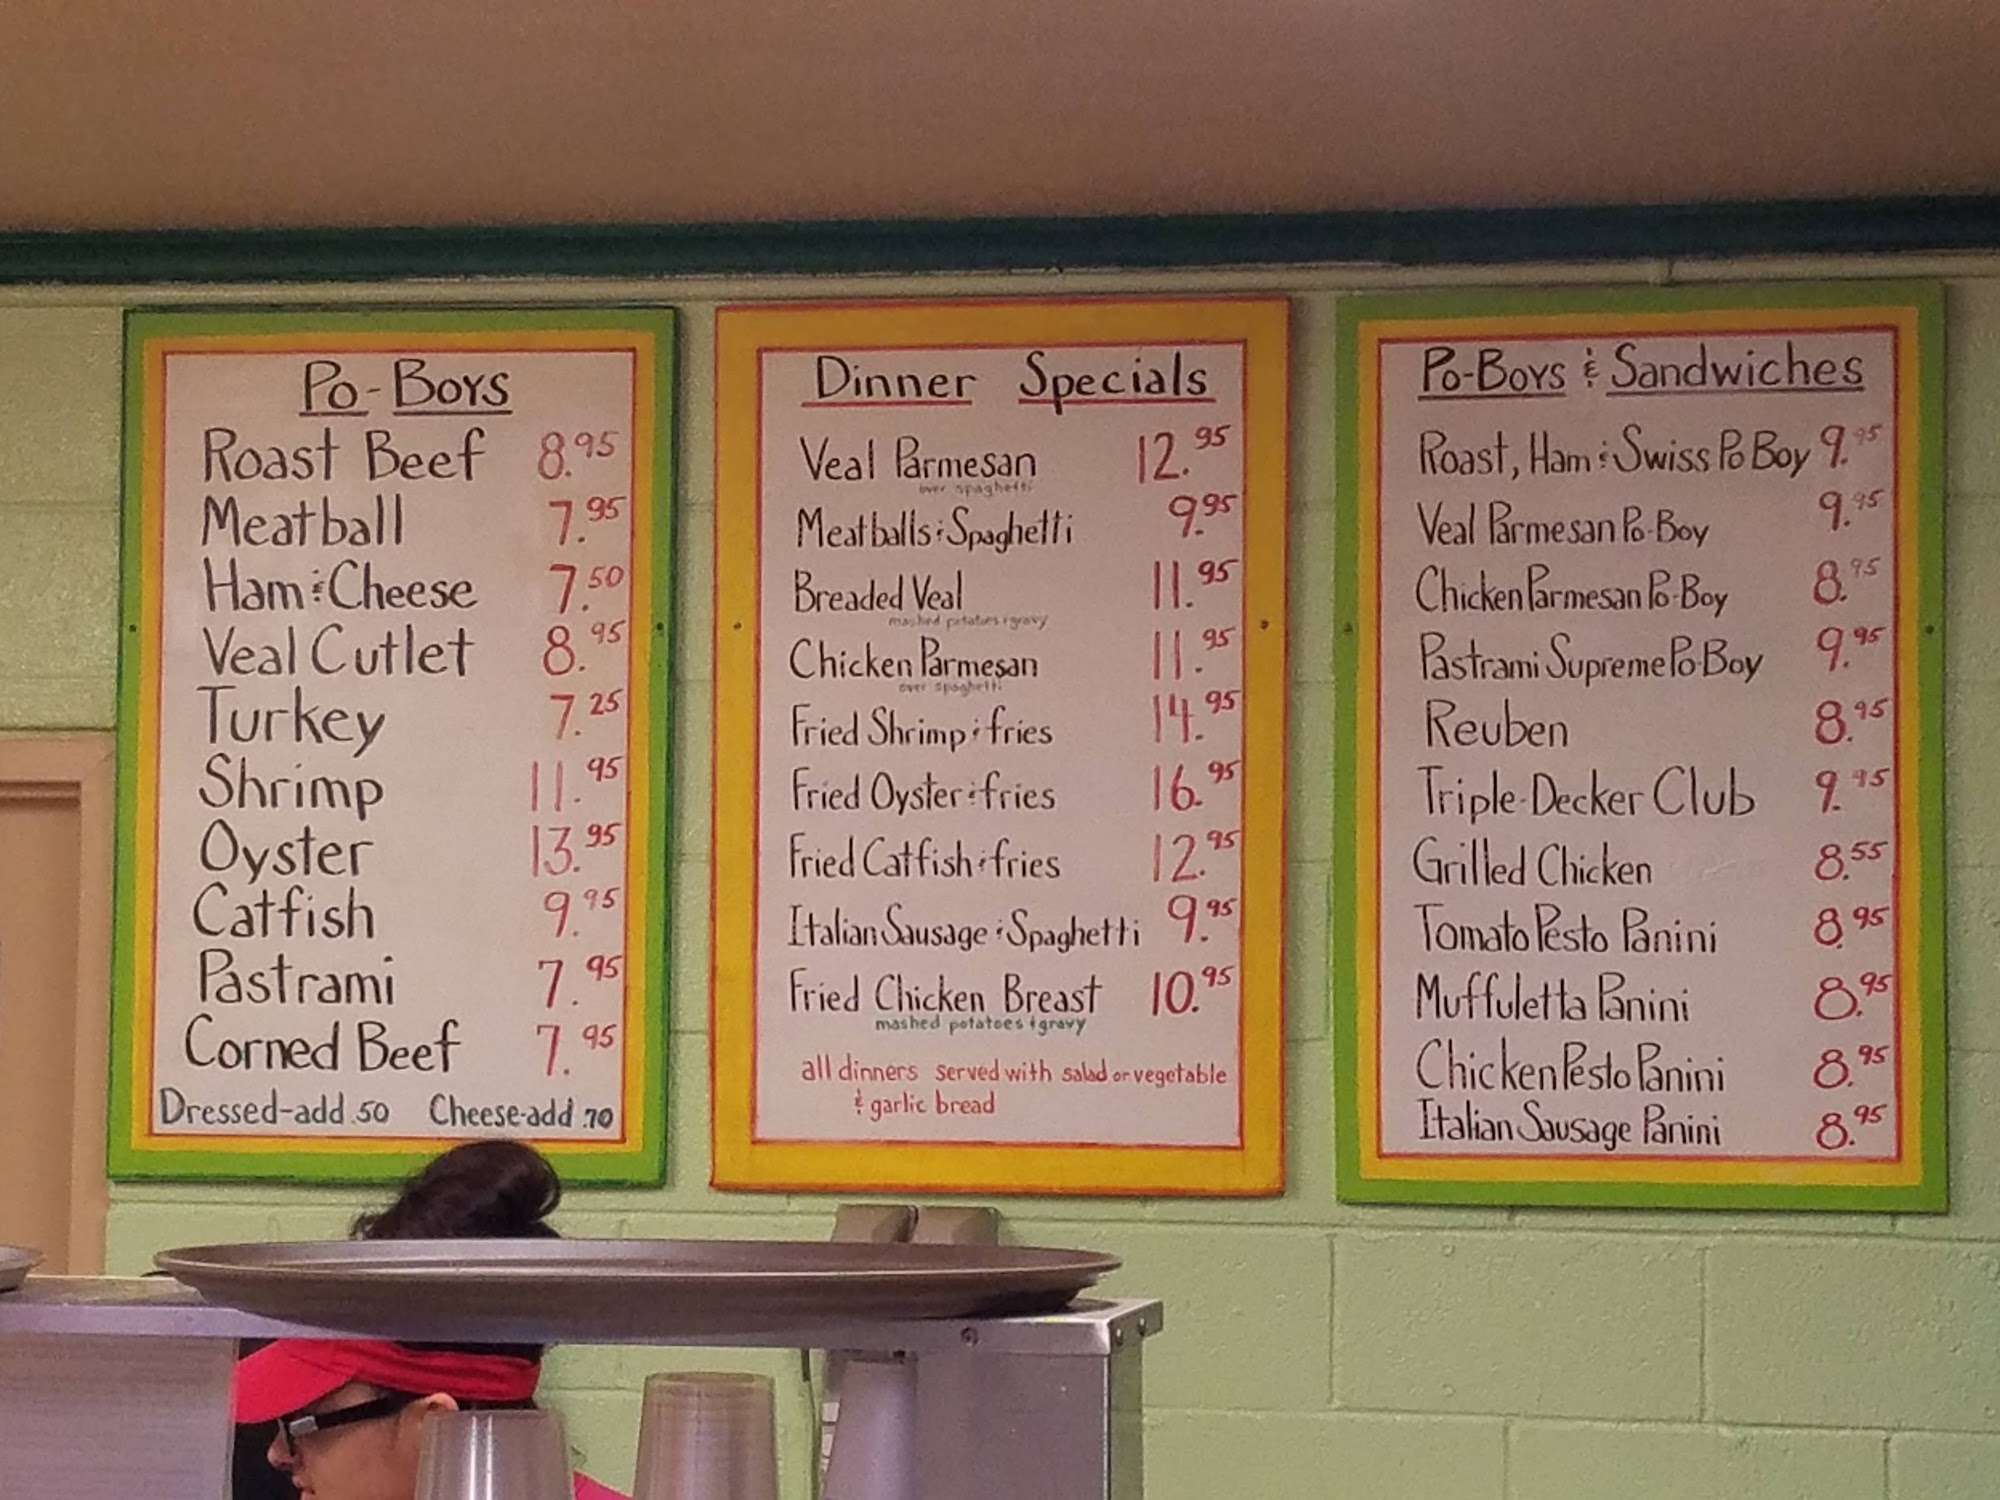 Po-Boys
Roast Beef 8.95
Meatball 7.95
Ham & Cheese 7.50
Veal Cutlet 8.95
Turkey 7.25
Shrimp 11.95
Oyster 13.95
Catfish 9.95
Pastrami 7.95
Corned Beef 7.95
Dressed-add .50 Cheese-add .70
Dinner Specials
Veal Parmesan 12.95
over spaghetti
Meatballs & Spaghetti 9.95
Breaded Veal 11.95
mashed potatoes & gravy
Chicken Parmesan 11.95
over spaghetti
Fried Shrimp & fries 14.95
Fried Oyster & fries 16.95
Fried Catfish & fries 12.95
Italian Sausage & Spaghetti 9.95
Fried Chicken Breast 10.95
mashed potatoes & gravy
all dinners served with salad or vegetable
& garlic bread
Po-Boys & Sandwiches
Roast, Ham & Swiss Po Boy 9.95
Veal Parmesan Po-Boy 9.95
Chicken Parmesan Po-Boy 8.95
Pastrami Supreme Po-Boy 9.95
Reuben 8.95
Triple-Decker Club 9.95
Grilled Chicken 8.55
Tomato Pesto Panini 8.95
Muffuletta Panini 8.95
Chicken Pesto Panini 8.95
Italian Sausage Panini 8.95